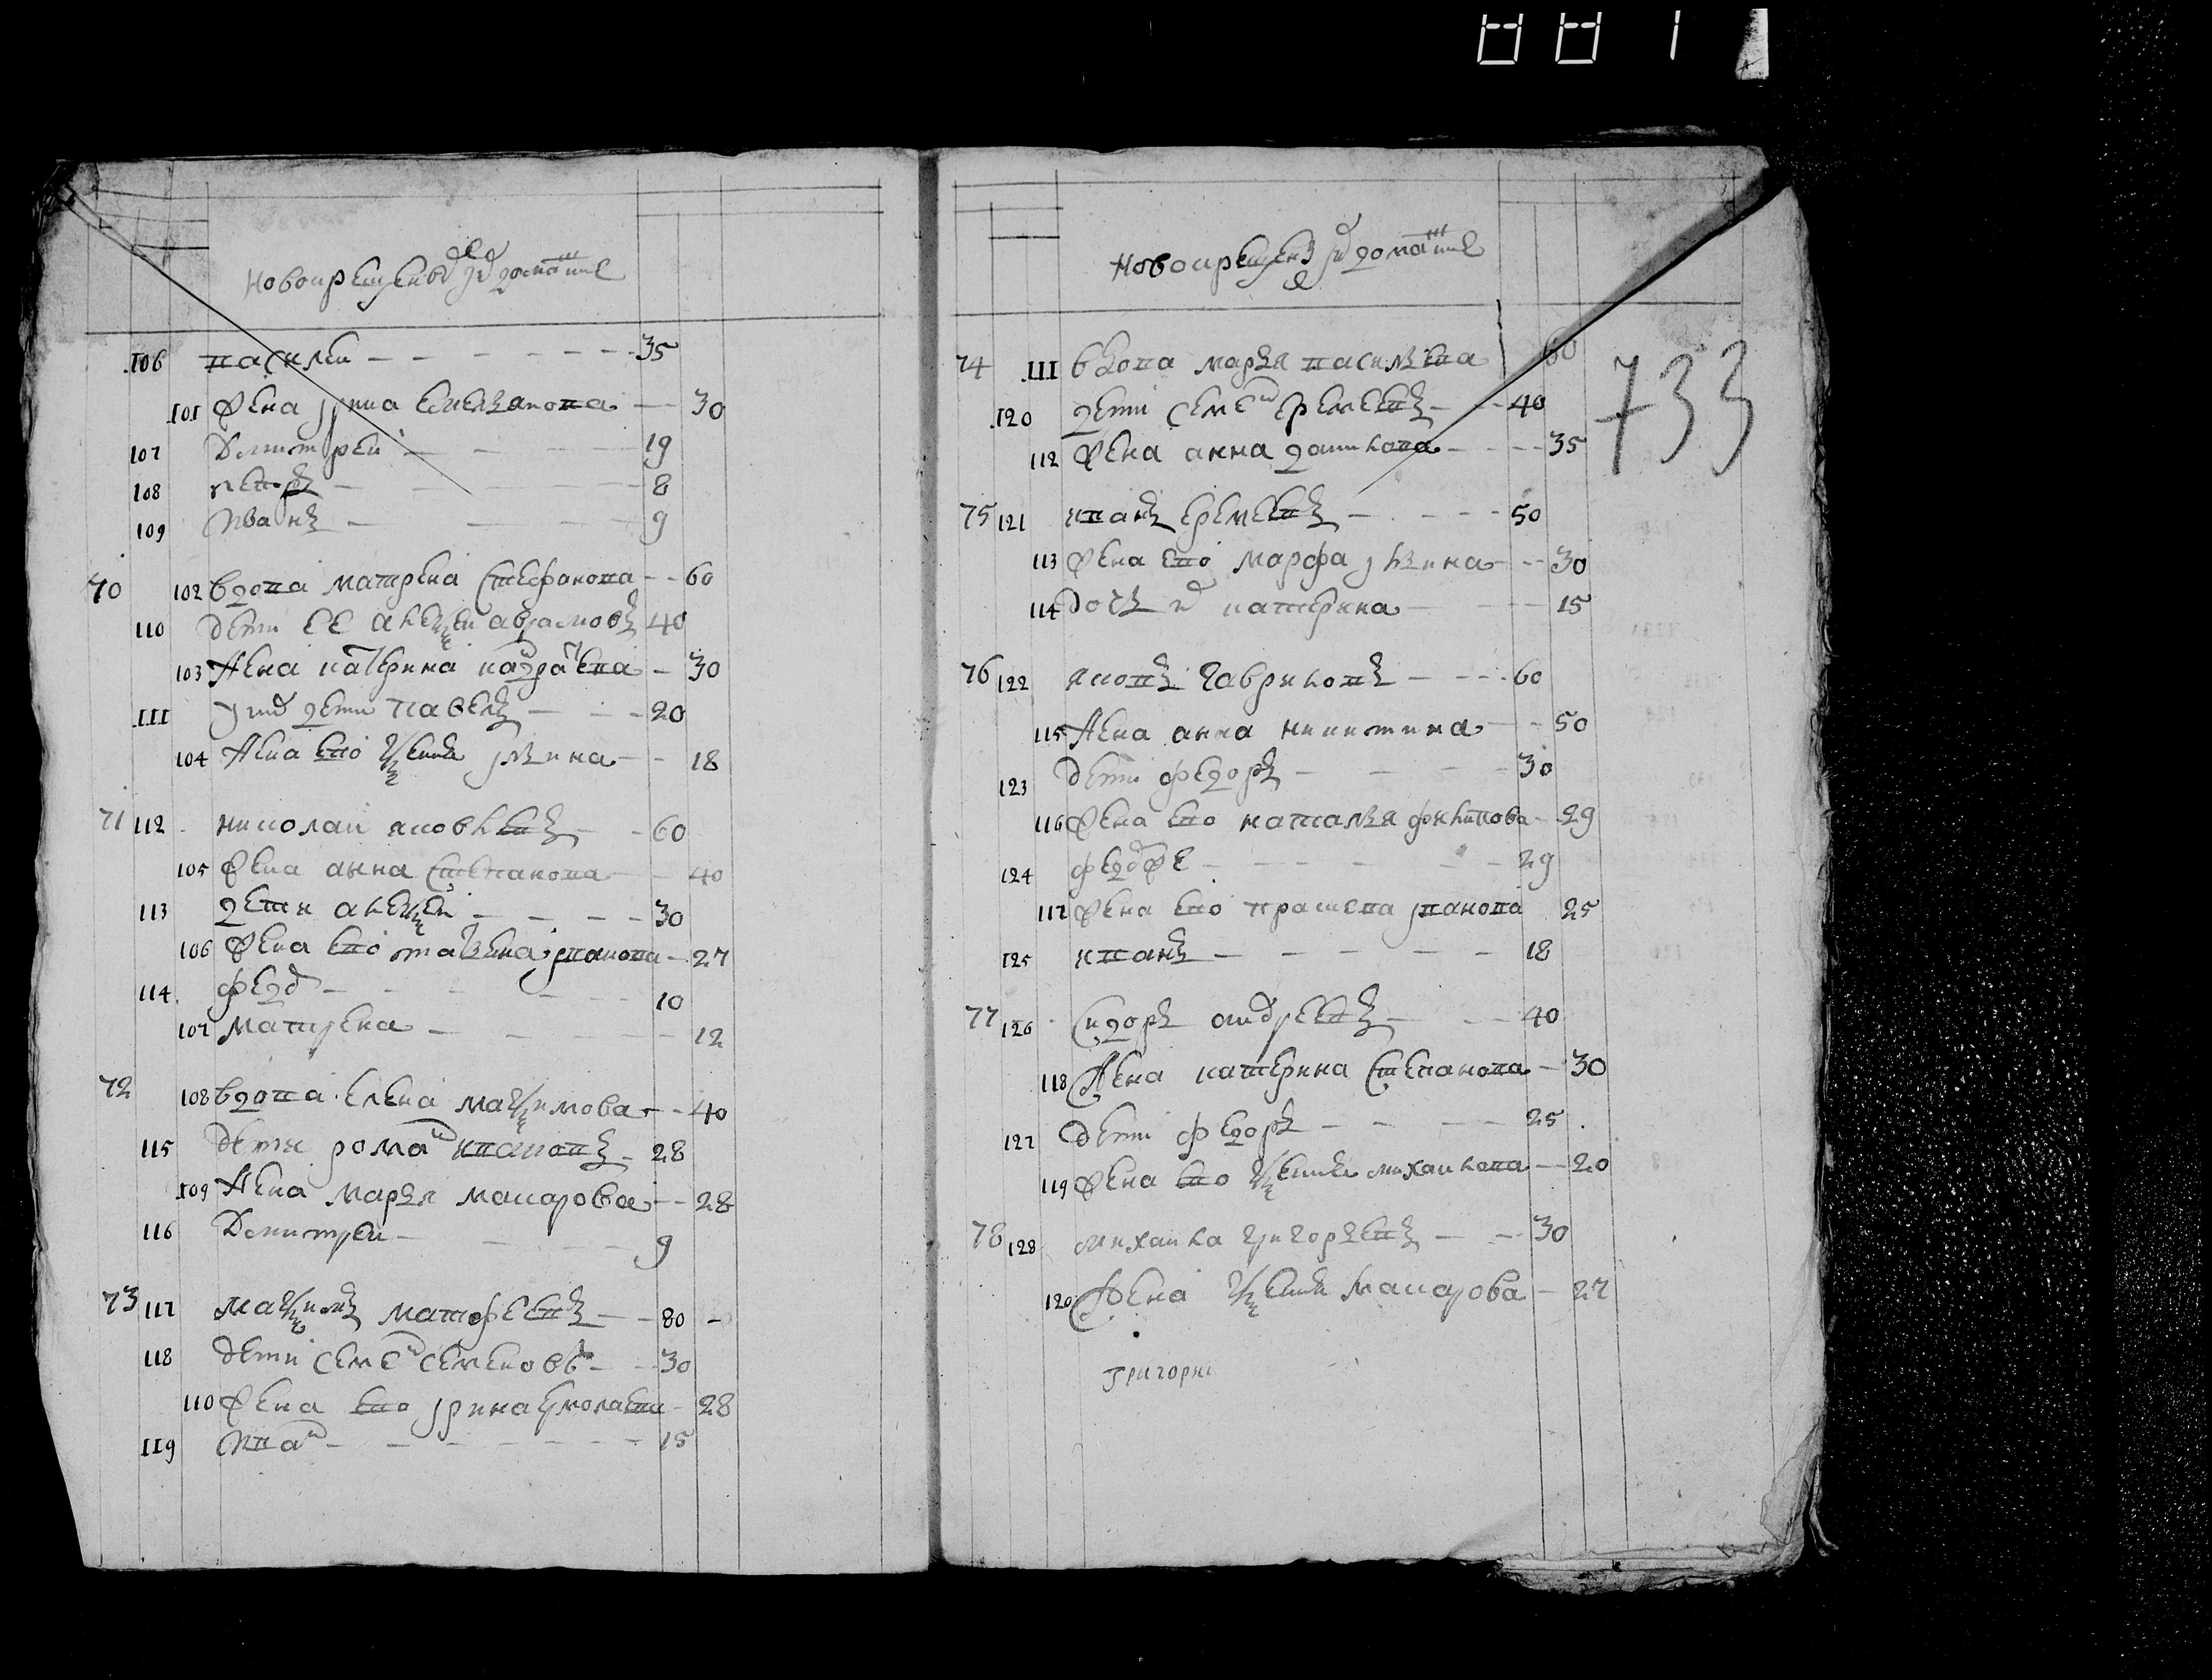 Новокрещены и домашние
106 Василей 35
101 жена 30
107 Дмитрей 19
108 Петръ 8
109 Иванъ 9
70 102 вдова матрена стефанова 60
110 дети ее алеѯей аврамовъ 40
103 жена катерина 30
111 у них дети павелъ 20
104 жена ево ѯения 18
71 112 николай яковлевъ 60
105 жена анна степанова 40
113 дети алеѯей 30
106 жена ево татьяна иванова 27
114 федор 10
107 матрена 12
72 108 вдова елена маѯимова 40
115 дети роман ивановъ 28
109 жена марья макарова 28
116 Дмитрей 9
73 117 маѯимъ матфеевъ 80
118 дети семен семеновъ 30
110 жена ево ирина ермолаева 28
119 Иван 15
733
Новокрещены и домашние
74 111 вдова марья васильева 60
120 дети семен еремеевъ 40
112 жена анна данилова 35
75 121 иванъ еремеевъ 50
113 жена ево марфа ильина 30
114 дочь их катерина 15
76 122 яковъ гавриловъ 60
115 жена анна никитина 50
123 дети федоръ 30
116 жена ево наталья филипова 29
124 федор же 29
117 жена ево прасковья иванова 25
125 иванъ 18
77 126 сидоръ андреевъ 40
118 жена катерина степанова 30
127 дети федоръ 25
119 жена ево ѯения михаилова 20
78 128 михаила григорьевъ 30
120 жена ѯения макарова 27
Григорий